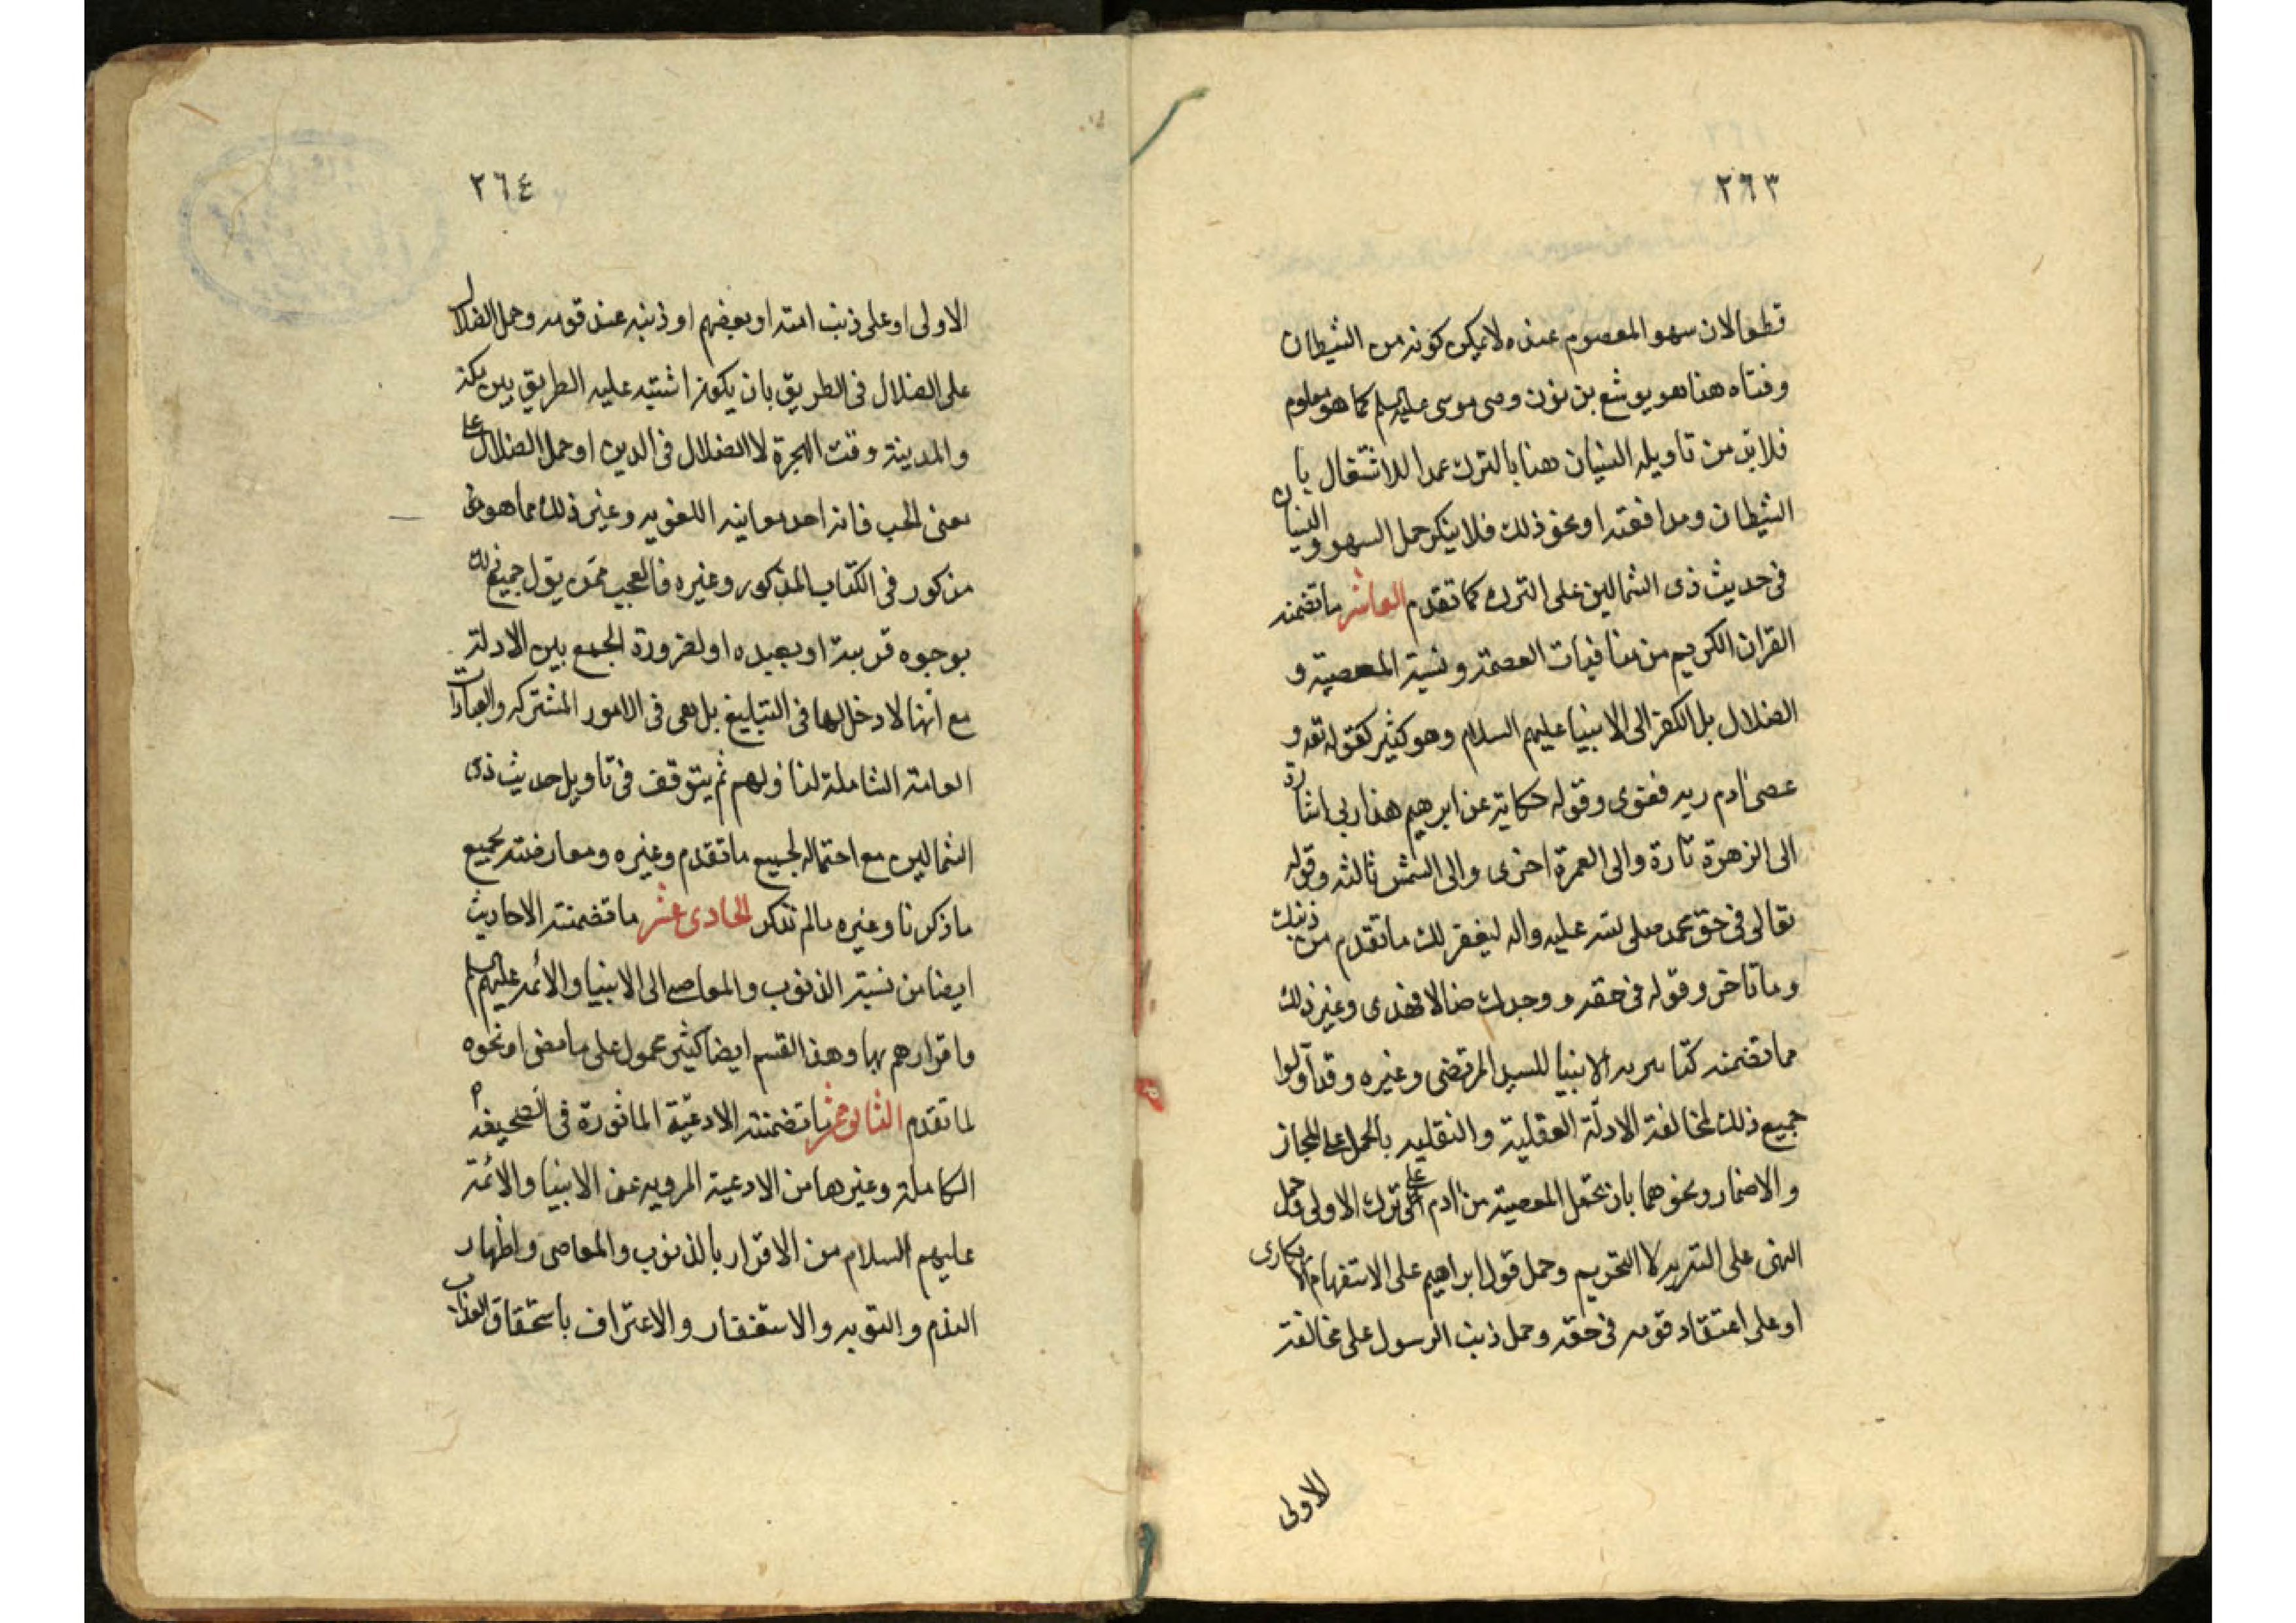 ٢٦٣
قطعا لان سهو المعصوم عنده لا يمكن كونه من الشيطان
وفتاه هنا هو يوشع بن نون وصى موسى عليه السلم كما هو معلوم
فلابد من تاويله النسيان هنا بالترك عمدا للاشتغال با
الشيطان ومدافعته او نحو ذلك فلا ينكر حمل السهو والنسيان
فى حديث ذى الشمالين على الترك كما تقدم العاشر ما تضمنه
القران الكريم من منافيات العصمة ونسبة المعصية و
الضلال بل الكفر الى الانبيا عليهم السلام وهو كثير كقوله تعه و
عصى ادم ربه فغوى وقوله حكاية عن ابرهيم هذا ربى اشارة
الى الزهرة تارة والى القمرة اخرى والى الشمس ثالثه وقوله
تعالى فى حق محمد صلى الله عليه واله ليغفر لك ما تقدم من ذنبك
وما تاخر وقوله فى حقه ووجدك ضالا فهدى وغير ذلك
مما تضمنه كتاب تنزيه الانبيا للسيد المرتضى وغيره وقد آولوا
جميع ذلك لمخالفة الادلّة العقلية والنقليه بالحمل على المجاز
والاضمار ونحوهما بان تحمل المعصية من ادم على ترك الاولى وحمل
النهى على التنزيه لا التحريم وحمل قول ابراهيم على الاستفهام الانكارى
او على اعتقاد قومه فى حقه وحمل ذنب الرسول على مخالفة
الاولى
٢٦٤
الاولى او على ذنب امته او بعضهم او ذنبه عند قومه وحمل الضلال
على الضلال فى الطريق بان يكون اشتبه عليه الطريق بين مكة
والمدينة وقت الهجرة لا الضلال فى الدين او حمل الضلال على
معنى الحب فانه احد معانيه اللغويه وغير ذلك مما هو
مذكور فى الكتاب المذكور وغيره فالعجب ممّن يقول جميع ذلك
بوجوه قريبة او بعيده او لضرورة الجمع بين الادلة
مع انها لا دخل لها فى التبليغ بل هى فى الامور المشتركه والعبادات
العامة الشاملة لنا ولهم ثم يتوقف فى تاويل حديث ذى
الشمالين مع احتماله لجميع ما تقدم وغيره ومعارضته لجميع
ما ذكرنا وغيره مالم نذكر الحادى عشر ما تضمنته الاحاديث
ايضا من نسبة الذنوب والمعاصى الى الانبيا والأئمه عليهم السلم
واقرارهم بها وهذا القسم ايضا كثير محمول على ما مضى او نحوه
لما تقدم الثانى عشر ما تضمنته الادعيّة الماثورة فى الصحيفه
الكاملة وغيرها من الادعية المرويه عن الانبيا والائمّة
عليهم السلام من الاقرار بالذنوب والمعاصى واظهار
الندم والتوبه والاستغفار والاعتراف باستحقاق العذاب